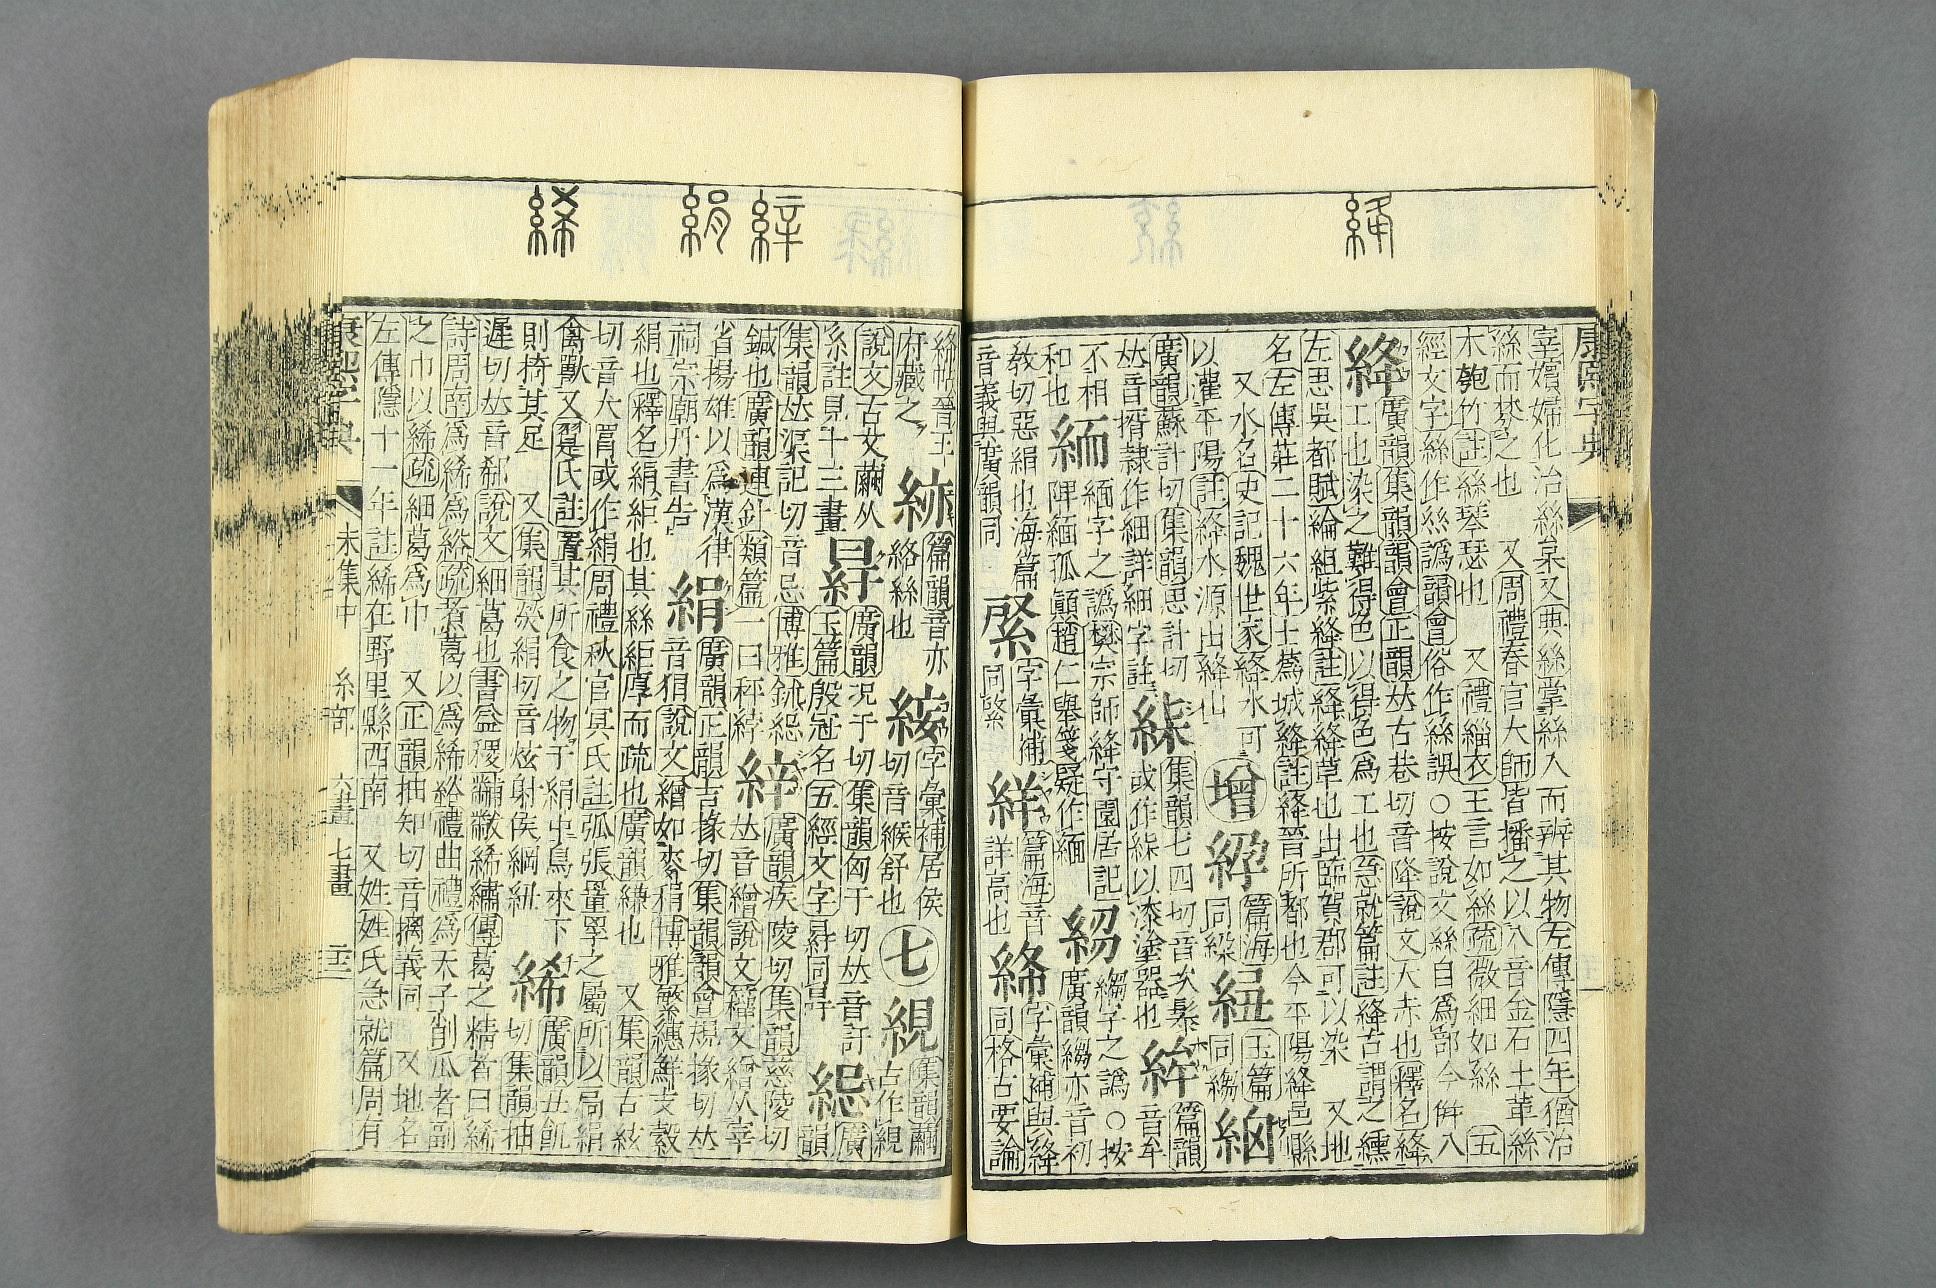 絳
康熙字典
宰婿婦化治絲枲又典絲掌絲入而辨其物左傳隱四年猶治
絲而棼之也 又周禮春官大師皆播之以八音金石土革絲
木匏竹註絲琴瑟也 又禮緇衣王言如絲疏微細如絲 五
經文字絲作絲譌韻會俗作絲誤○按說文絲自爲部今倂入
絳 廣韻集韻韻會正韻𠀤古巷切音降說文大赤也釋名絳
工也染之難得色以得色爲工也急就篇註絳古謂之纁
左思吳都賦綸組紫絳註絳絳草也出臨賀郡可以染 又地
名左傳莊二十六年士蔿城絳註絳晉所都也今平陽絳邑縣
又水名史記魏世家絳水可
以灌平陽註絳水源出絳山
增
同緅
篇海
玉篇
同
廣韻蘇計切集韻思計切
𠀤音揟隷作細詳細字註
集韻七四切音次髹
或作絘以漆塗器也
篇韻
音牟
不相
和也
緬
緬字之譌樊宗師絳守園居記
陴緬孤顛䟆仁舉箋疑作緬
縐字之譌○按
廣韻縐亦音初
教切惡絹也海篇
音義與廣韻同
字彙補
同綮
絴
篇海音
詳高也
字彙補與絳
同格古要論
絳帖晉王
府藏之
篇韻音亦
絡絲也
字彙補居侯
切音緱舒也
七
集韻繭
古作絸
說文古文繭从
糸註見十三畫
廣韻况于切集韻匈于切𠀤音訏
玉篇殷冠名五經文字䋍同冔
廣
韻
集韻𠀤渠記切音忌博雅鉥
鍼也廣韻連針類篇一曰秤綍
廣韻疾陵切集韻慈陵切
𠀤音繒說文籒文繒从宰
省揚雄以爲漢律
祠宗廟丹書告
絹
廣韻正韻吉掾切集韻韻會規掾切𠀤
音狷說文繒如麥䅌博雅繁總鮮支縠
絹也釋名絹絚也其絲絚厚而疏也廣韻縑也 又集韻古泫
切音犬罥或作絹周禮秋官冥氏註弧張罿罦之屬所以扃絹
禽獸又翨氏註置其所食之物于絹中鳥來下
則掎其足 又集韻熒絹切音炫射侯綱紐
絺
廣韻丑飢
切集韻抽
遲切𠀤音郗說文細葛也書益稷黼黻絺繡傳葛之精者曰絺
詩周南爲絺爲綌疏煑葛以爲絺綌禮曲禮爲天子削瓜者副
之巾以絺疏細葛爲巾 又正韻抽知切音摛義同 又地名
左傳隱十一年註絺在野里縣西南 又姓姓氏急就篇周有
康熙字典
未集中 糸部 六畫 七畫
絺 絹